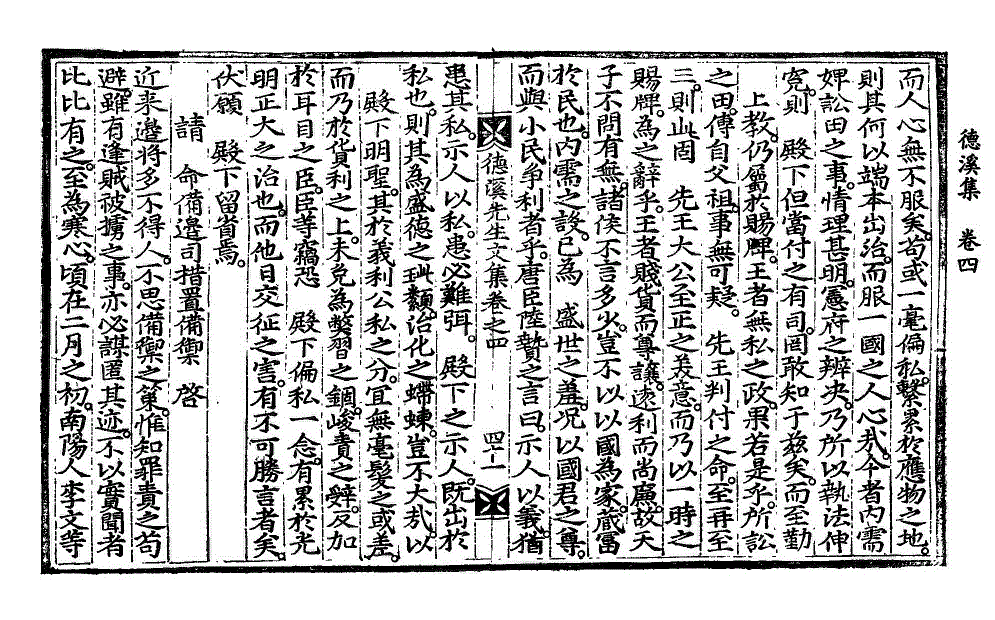 德溪集　卷四
而人心無不服矣。苟或一毫偏私。繫累於應物之地。
則其何以端本出治。而服一國之人心哉。今者內需
婢訟田之事。情理甚明。憲府之辨决。乃所以執法伸
寃。則　殿下但當付之有司。罔敢知于玆矣。而至勤
　上敎。仍屬於賜牌。王者無私之政。果若是乎。所訟
之田。傳自父祖。事無可疑。　先王判付之命。至再至
三。則此固　先王大公至正之美意。而乃以一時之
賜牌。爲之辭乎。王者賤貨而尊讓。遠利而尙廉。故天
子不問有無。諸侯不言多少。豈不以以國爲家。藏富
於民也。內需之設。已爲　盛世之羞。况以國君之尊。
而與小民爭利者乎。唐臣陸贄之言曰。示人以義。猶
德溪先生文集卷之四　四十一
患其私。示人以私。患必難弭。　殿下之示人。旣出於
私也。則其爲盛德之玼纇。治化之蝃蝀。豈不大哉。以
　殿下明聖。其於義利公私之分。宜無毫髮之或差。
而乃於貨利之上。未免爲弊習之錮。峻責之辭。反加
於耳目之臣。臣等竊恐　殿下偏私一念。有累於光
明正大之治也。而他日交征之害。有不可勝言者矣。
伏願　殿下留省焉。
　　請　命備邊司措置備禦　啓
近來邊將多不得人。不思備禦之策。惟知罪責之苟
避。雖有逢賊被擄之事。亦必謀匿其迹。不以實聞者
比比有之。至爲寒心。頃在二月之初。南陽人李文等